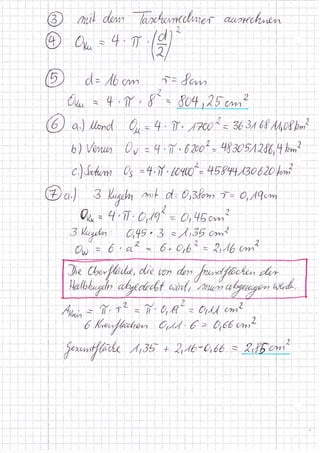 ③ mit dem Taschenrechner ausrechnen
④ OKu = 4 · π · (d/2)²
⑤ d = 16 cm r = 8cm
OKu = 4 · π · 8² = 804,25 cm²
⑥ a.) Mond OM = 4 · π · 1700² = 36316811,08 km²
b) Venus OV = 4 · π · 6200² = 483051286,4 km²
c.) Saturn OS = 4 · π · 60400² = 45844130620 km²
⑦ a.) 3 Kugeln mit d = 0,38cm r = 0,19cm
OKu = 4 · π · 0,19² = 0,45 cm²
3 Kugeln 0,45 · 3 = 1,35 cm²
OW = 6 · a² = 6 · 0,6² = 2,16 cm²
Die Oberfläche, die von den Grundflächen der
Halbkugeln abgedeckt wird, muss abgezogen werden.
AKreis = π · r² = π · 0,19² = 0,11 cm²
6 Kreisflächen 0,11 · 6 = 0,66 cm²
Gesamtfläche 1,35 + 2,16 - 0,66 = 2,85 cm²